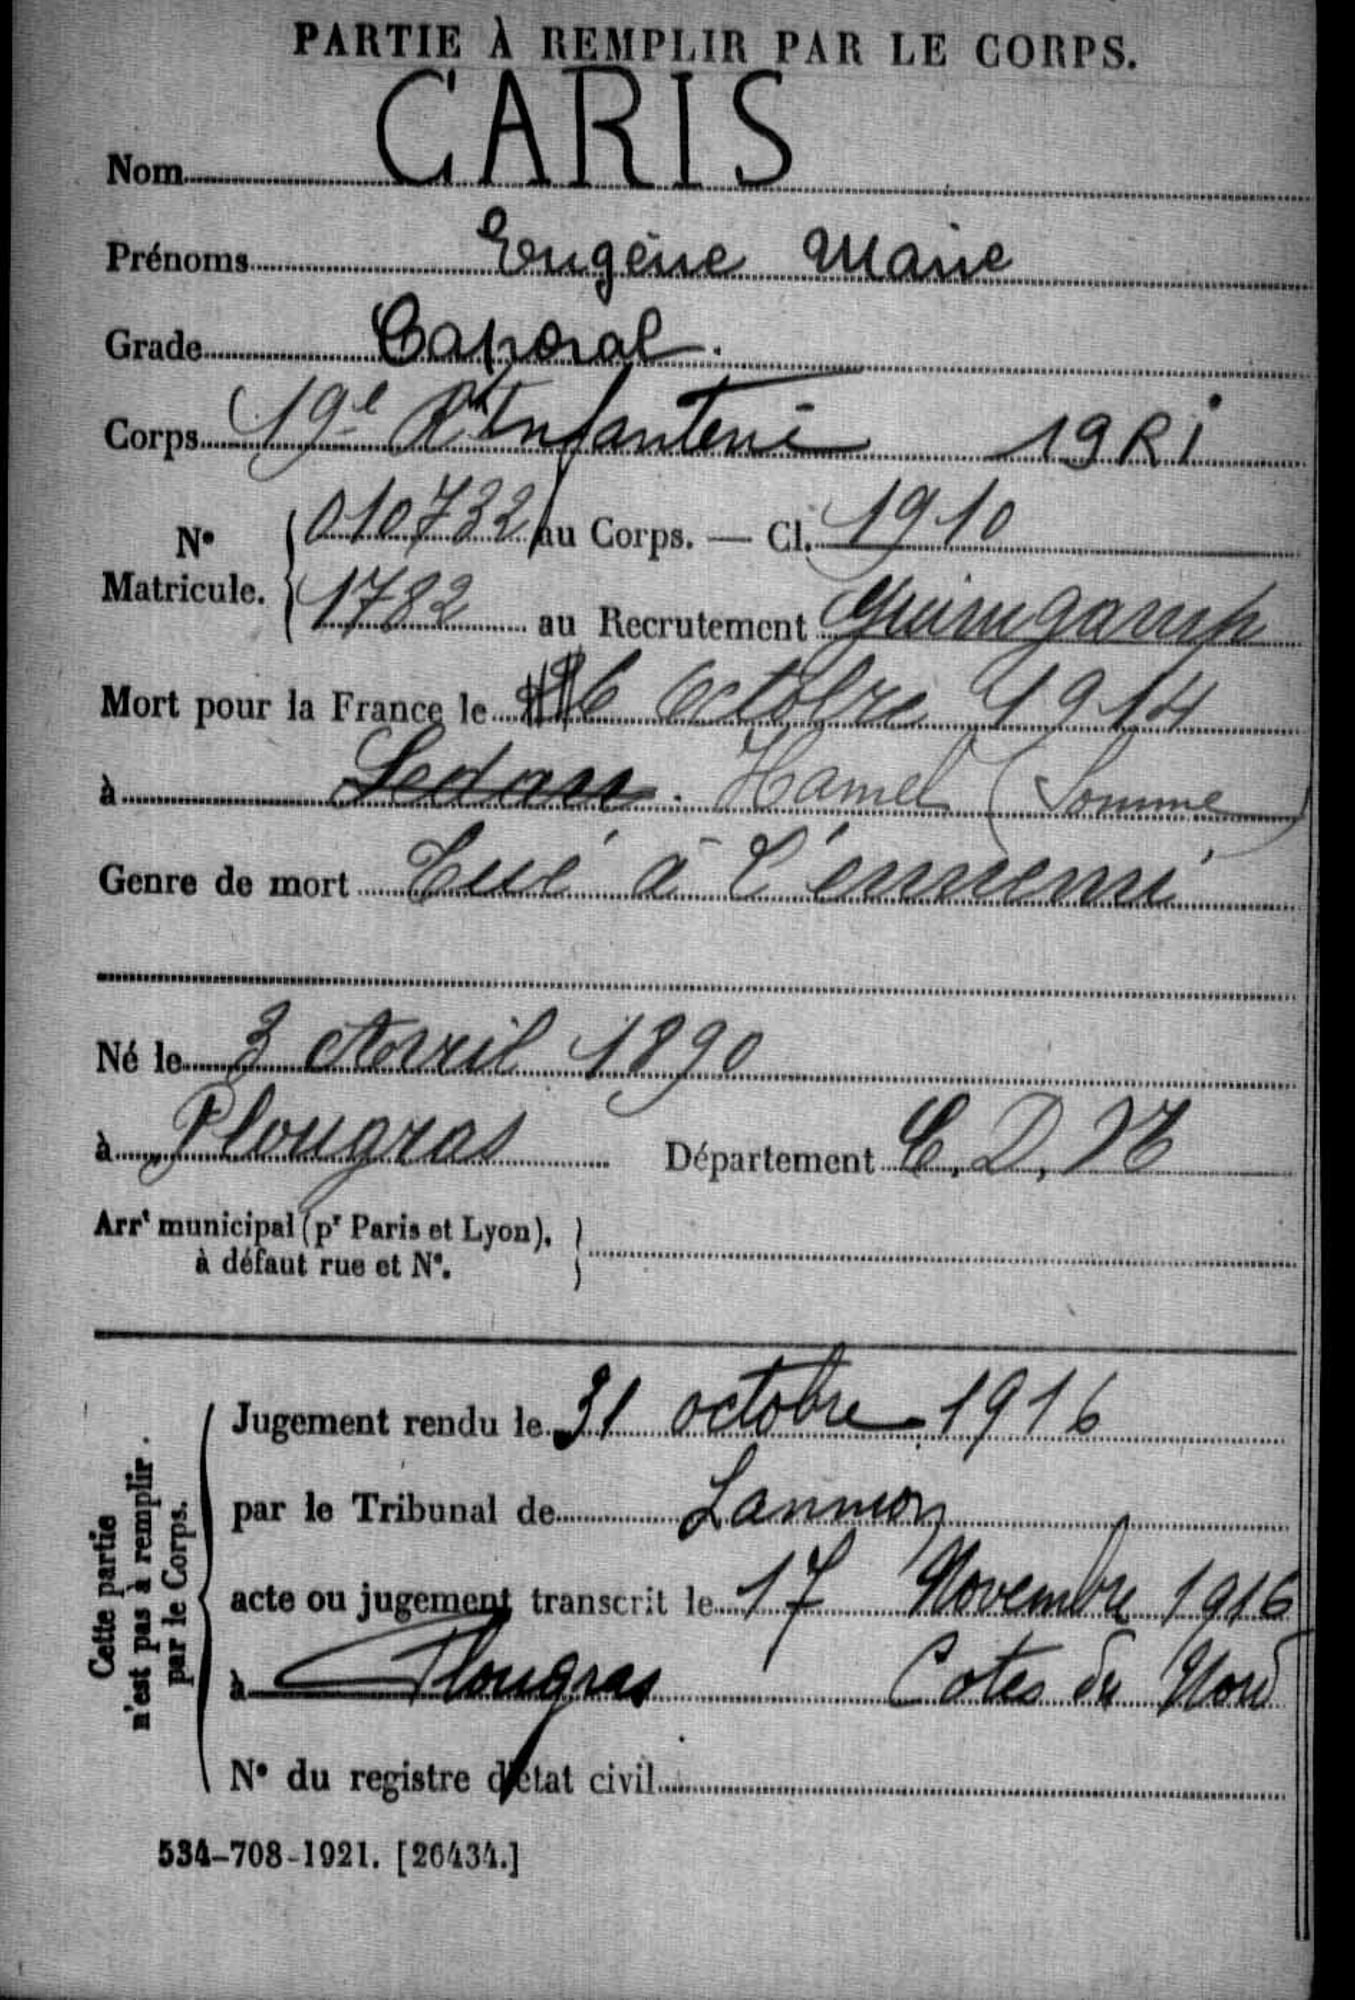 PARTIE À REMPLIR PAR LE CORPS.
Nom CARIS
Prénoms Eugène Marie
Grade Caporal.
Corps 19e Rt Infanterie 19 RI
No Matricule. 010732 au Corps. — Cl. 1910
1782 au Recrutement Guingamp
Mort pour la France le 6 Octobre 1914
à Sedan. Hamel (Somme)
Genre de mort Tué à l'ennemi
Né le 3 Avril 1890
à Plougras Département C. D. N
Arrt municipal (pr Paris et Lyon),
à défaut rue et No.
Cette partie
n'est pas à remplir
par le Corps.
Jugement rendu le 31 octobre 1916
par le Tribunal de Lannion
acte ou jugement transcrit le 17 Novembre 1916
à Plougras Cotes du Nord
No du registre d'état civil
534-708-1921. [26434.]